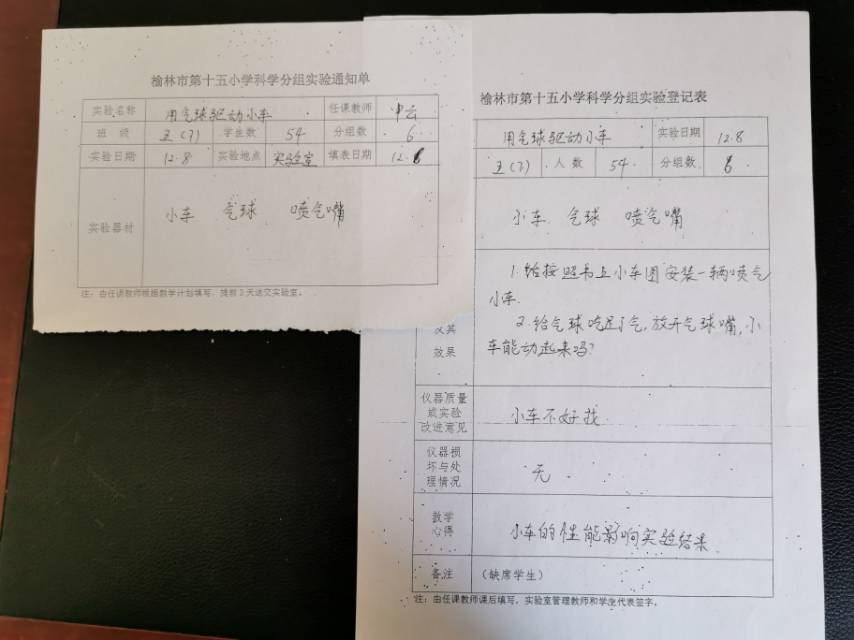 榆林市第十五小学科学分组实验通知单
实验名称 用气球驱动小车 任课教师 申云
班 级 五(7) 学生数 54 分组数 6
实验日期 12.8 实验地点 实验室 填表日期 12.6
实验器材 小车 气球 喷气嘴
注：由任课教师根据教学计划填写，提前3天送交实验室。
榆林市第十五小学科学分组实验登记表
用气球驱动小车 实验日期 12.8
五(7) 人数 54 分组数 6
小车 气球 喷气嘴
1.给按照书上小车图安装一辆喷气
小车.
2.给气球吃足了气,放开气球嘴,小
车能动起来吗?
及其
效果
仪器质量
或实验
改进意见
小车不好找.
仪器损
坏与处
理情况
无.
教学
心得
小车的性能影响实验结果
备注 (缺席学生)
注：由任课教师课后填写，实验室管理教师和学生代表签字。